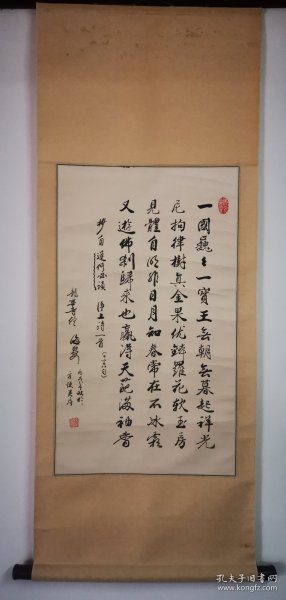 一國巍々一寶王無朝無暮起祥光
尼拘律樹真金果优缽羅花软玉房
見體自明非日月知春常在不冰霜
又遊佛剎歸來也贏得天葩滿袖香
抄自蓮修必读 淨土诗一首
孔夫子旧书网
www.kongfz.com